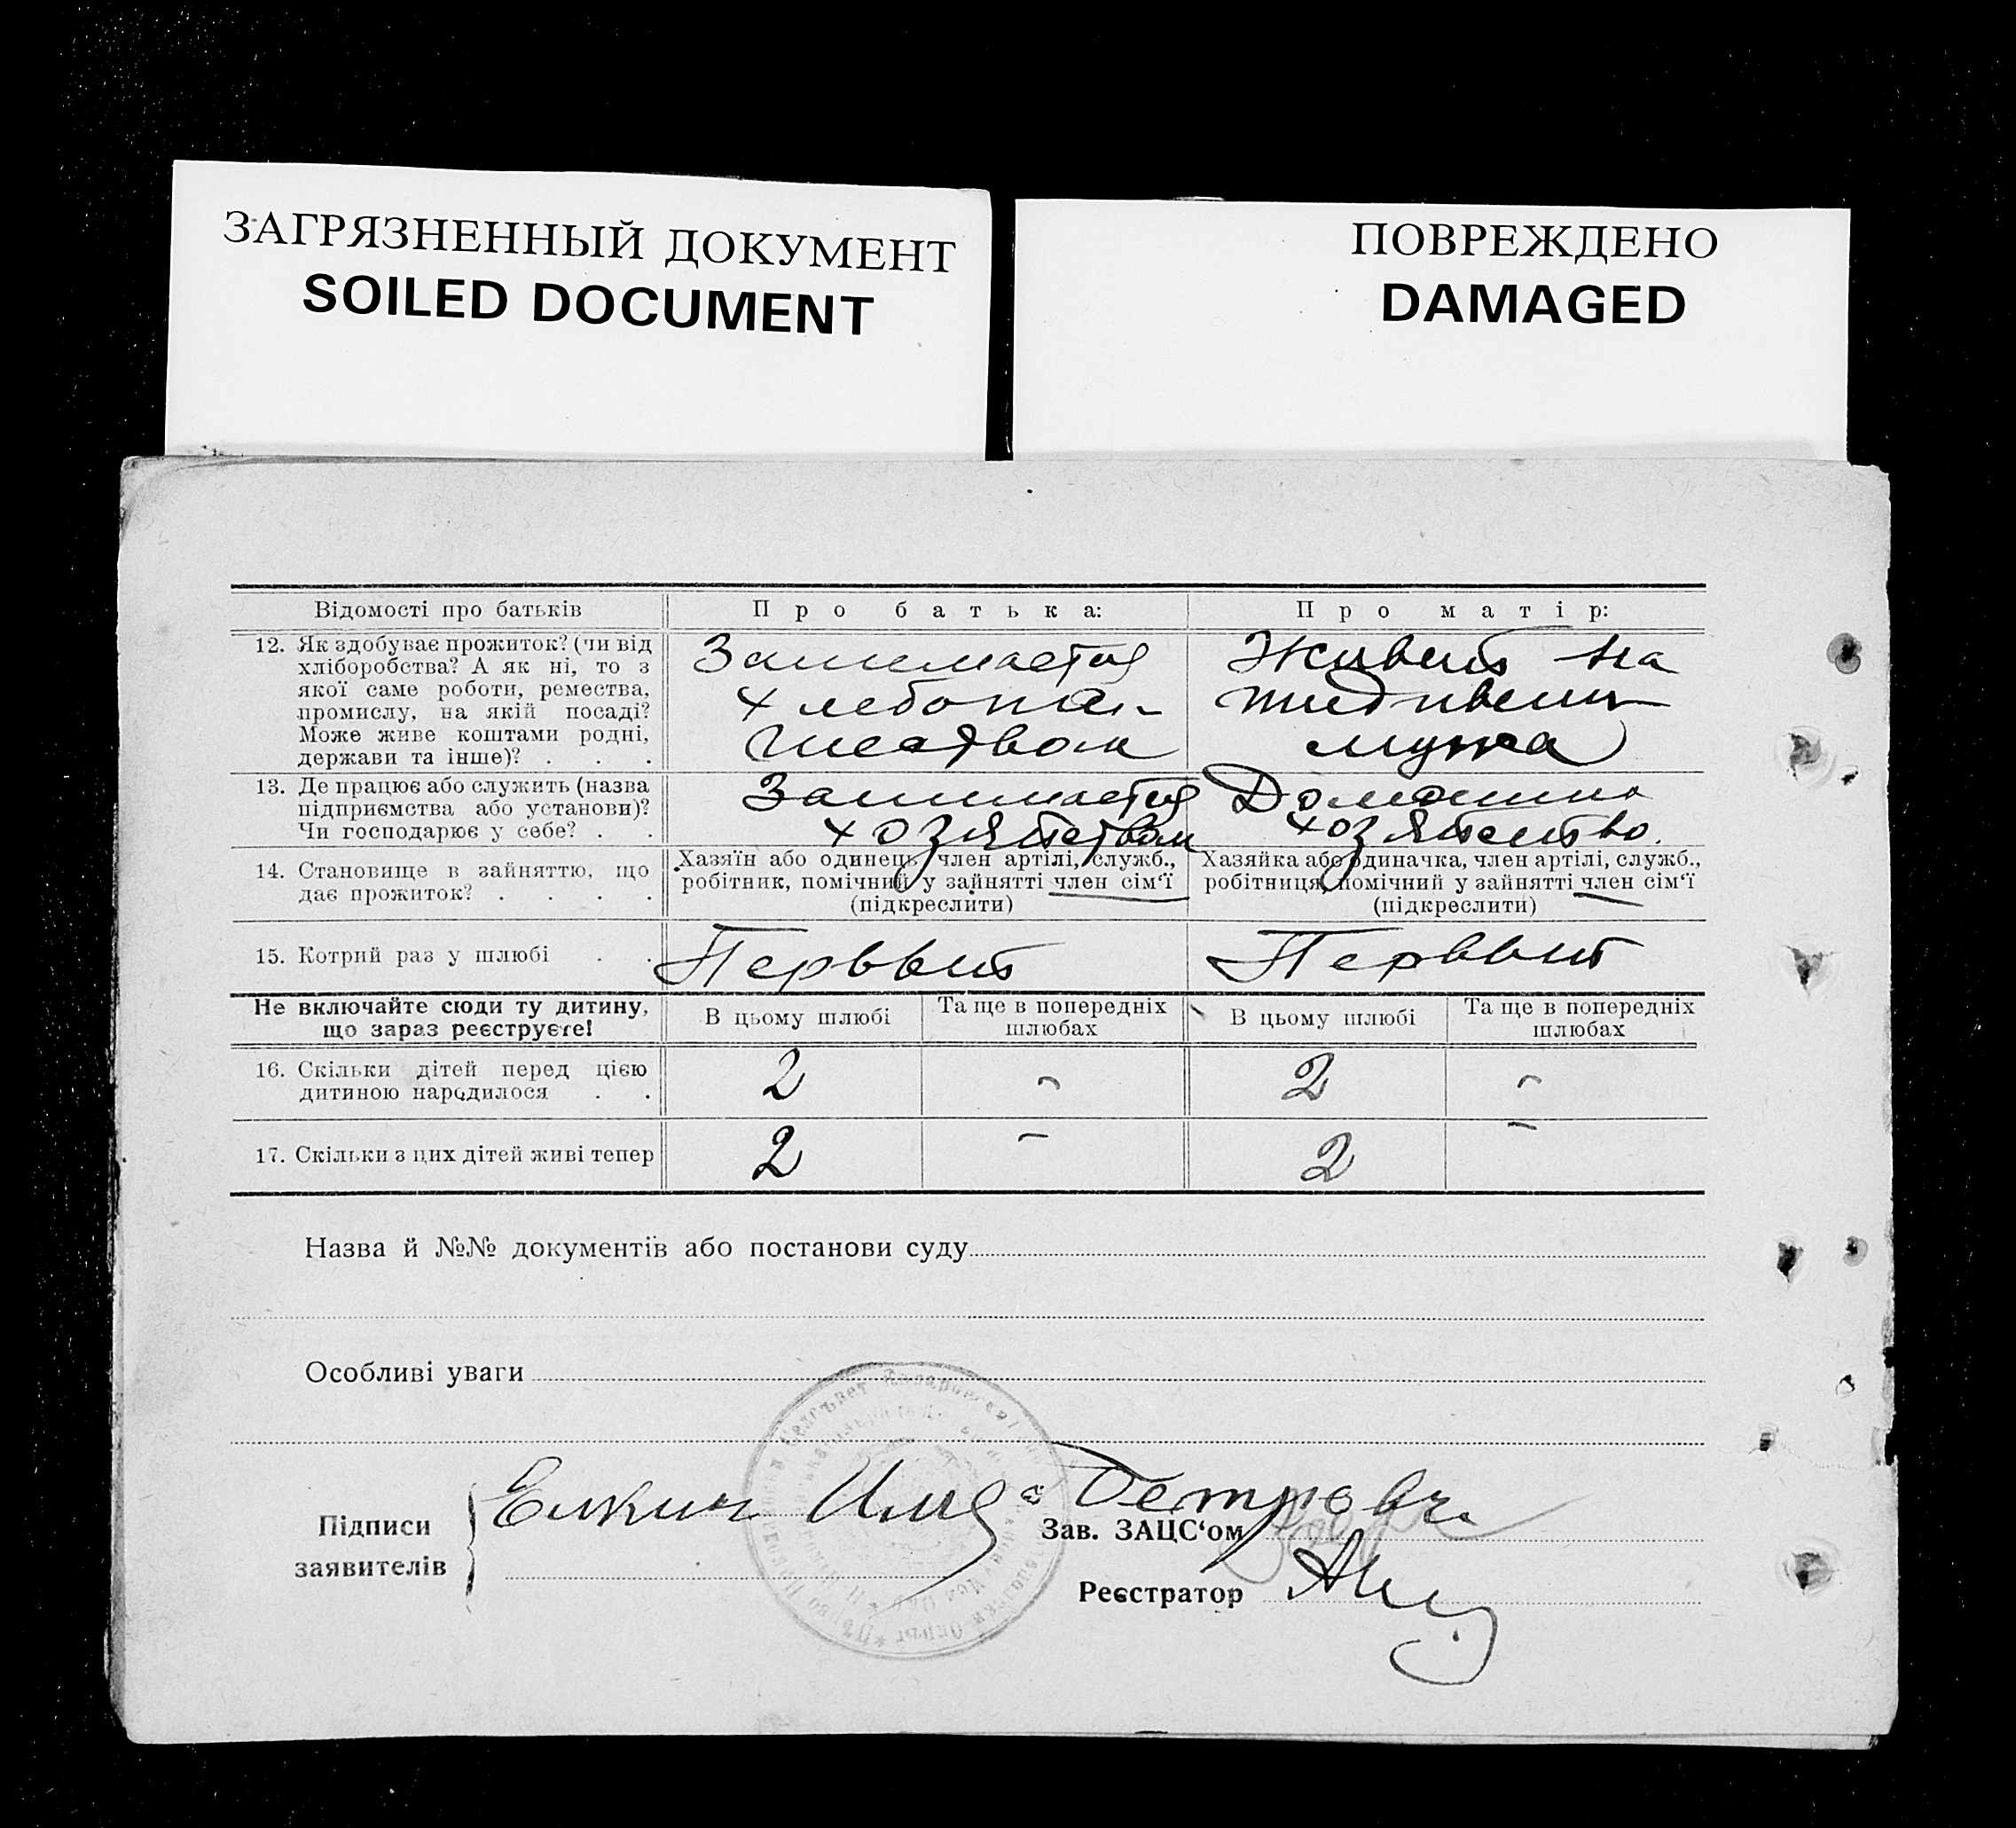 ЗАГРЯЗНЕННЫЙ ДОКУМЕНТ
SOILED DOCUMENT
ПОВРЕЖДЕНО
DAMAGED
Відомості про батьків
Про батька:
Про матір:
12. Як здобуває прожиток? (чи від
хліборобства? А як ні, то з
якої саме роботи, ремества,
промислу, на якій посаді?
Може живе коштами родні,
держави та інше)? . . .
Занимается
хлебопа-
шеством
Живет на
мужа
13. Де працює або служить (назва
підприємства або установи)?
Чи господарює у себе? . .
Занимается
хозяйством
Домашнее
хозяйство.
14. Становище в зайняттю, що
дає прожиток? . . . .
Хазяїн або одинець, член артілі, служб.,
робітник, помічний у зайнятті член сім'ї
(підкреслити)
Хазяйка або одиначка, член артілі, служб.,
робітниця, помічний у зайнятті член сім'ї
(підкреслити)
15. Котрий раз у шлюбі . .
Первый
Первый
Не включайте сюди ту дитину,
що зараз реєструєте!
В цьому шлюбі
Та ще в попередніх
шлюбах
В цьому шлюбі
Та ще в попередніх
шлюбах
16. Скільки дітей перед цією
дитиною народилося . .
2
-
2
-
17. Скільки з цих дітей живі тепер
2
-
2
-
Назва й №№ документів або постанови суду
Особливі уваги
Підписи
заявителів
Зав. ЗАЦС'ом
Реєстратор